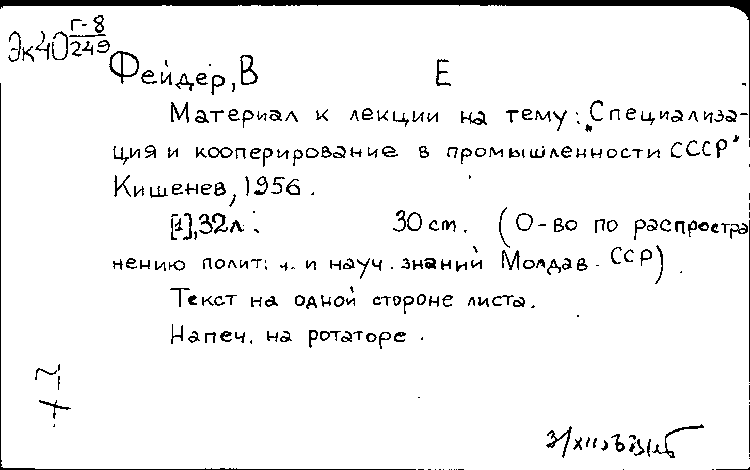 Эк40 Г-8/249
Фейдер, В Е
Материал к лекции на тему: „Специализа-
ция и кооперирование в промышленности СССР"
Кишенев, 1956.
[1], 32 л. 30 cm. (О-во по распростра
нению полит. и. и науч. знаний Молдав. ССР).
Текст на одной стороне листа.
Напеч. на ротаторе.